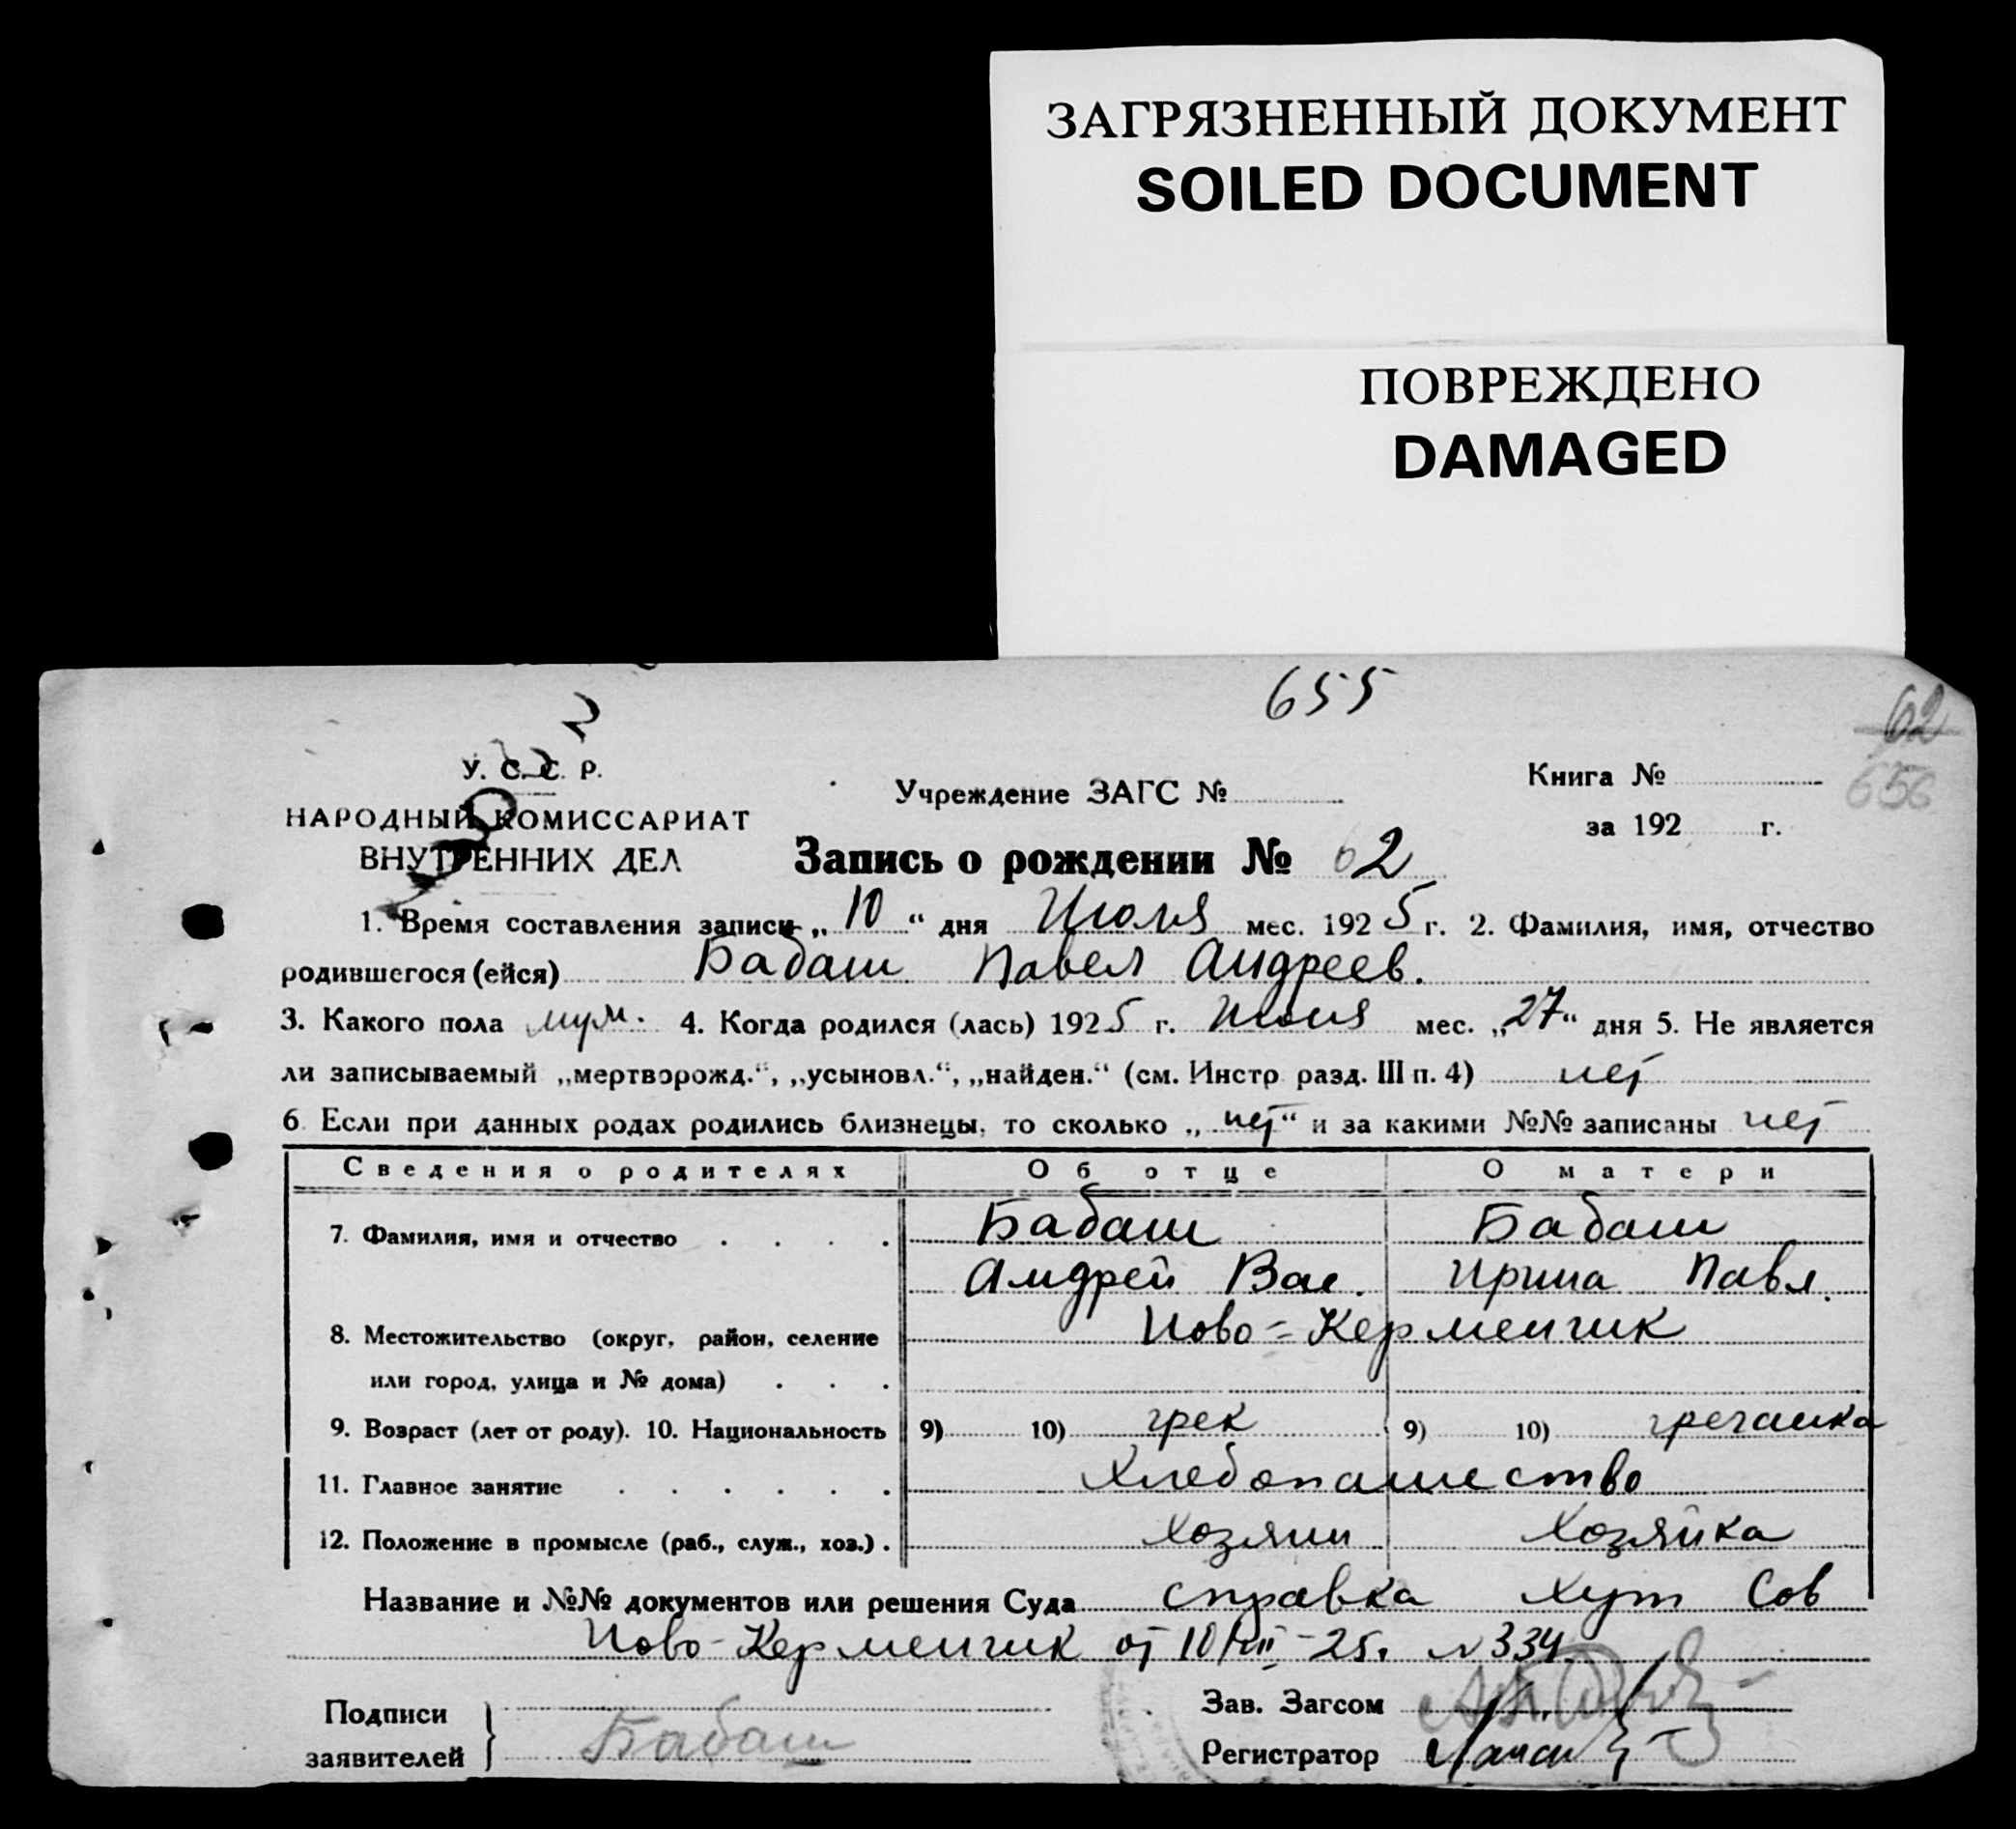 ЗАГРЯЗНЕННЫЙ ДОКУМЕНТ
SOILED DOCUMENT
ПОВРЕЖДЕНО
DAMAGED
655
62
656
У. С. С. Р.
НАРОДНЫЙ КОМИССАРИАТ
ВНУТРЕННИХ ДЕЛ
Учреждение ЗАГС №
Книга №
за 192 г.
Запись о рождении № 62
1. Время составления записи „10“ дня Июля мес. 1925 г. 2. Фамилия, имя, отчество
родившегося (ейся) Бабаш Павел Андреев.
3. Какого пола муж. 4. Когда родился (лась) 1925 г. Июня мес. „27“ дня 5. Не является
ли записываемый „мертворожд.“, „усыновл.“, „найден.“ (см. Инстр разд. III п. 4) нет
6 Если при данных родах родились близнецы, то сколько „нет“ и за какими №№ записаны нет
Сведения о родителях Об отце О матери
7. Фамилия, имя и отчество . . . . Бабаш Бабаш
Андрей Вас. Ирина Павл.
8. Местожительство (округ, район, селение Ново-Керменчик
или город, улица и № дома) . . .
9. Возраст (лет от роду). 10. Национальность 9) 10) грек 9) 10) гречанка
11. Главное занятие . . . . . . Хлебопашество
12. Положение в промысле (раб., служ., хоз.) . Хозяин Хозяйка
Название и №№ документов или решения Суда справка Хут Сов
Ново-Керменчик от 10/VII-25г N334.
Подписи
заявителей
Бабаш
Зав. Загсом
Регистратор